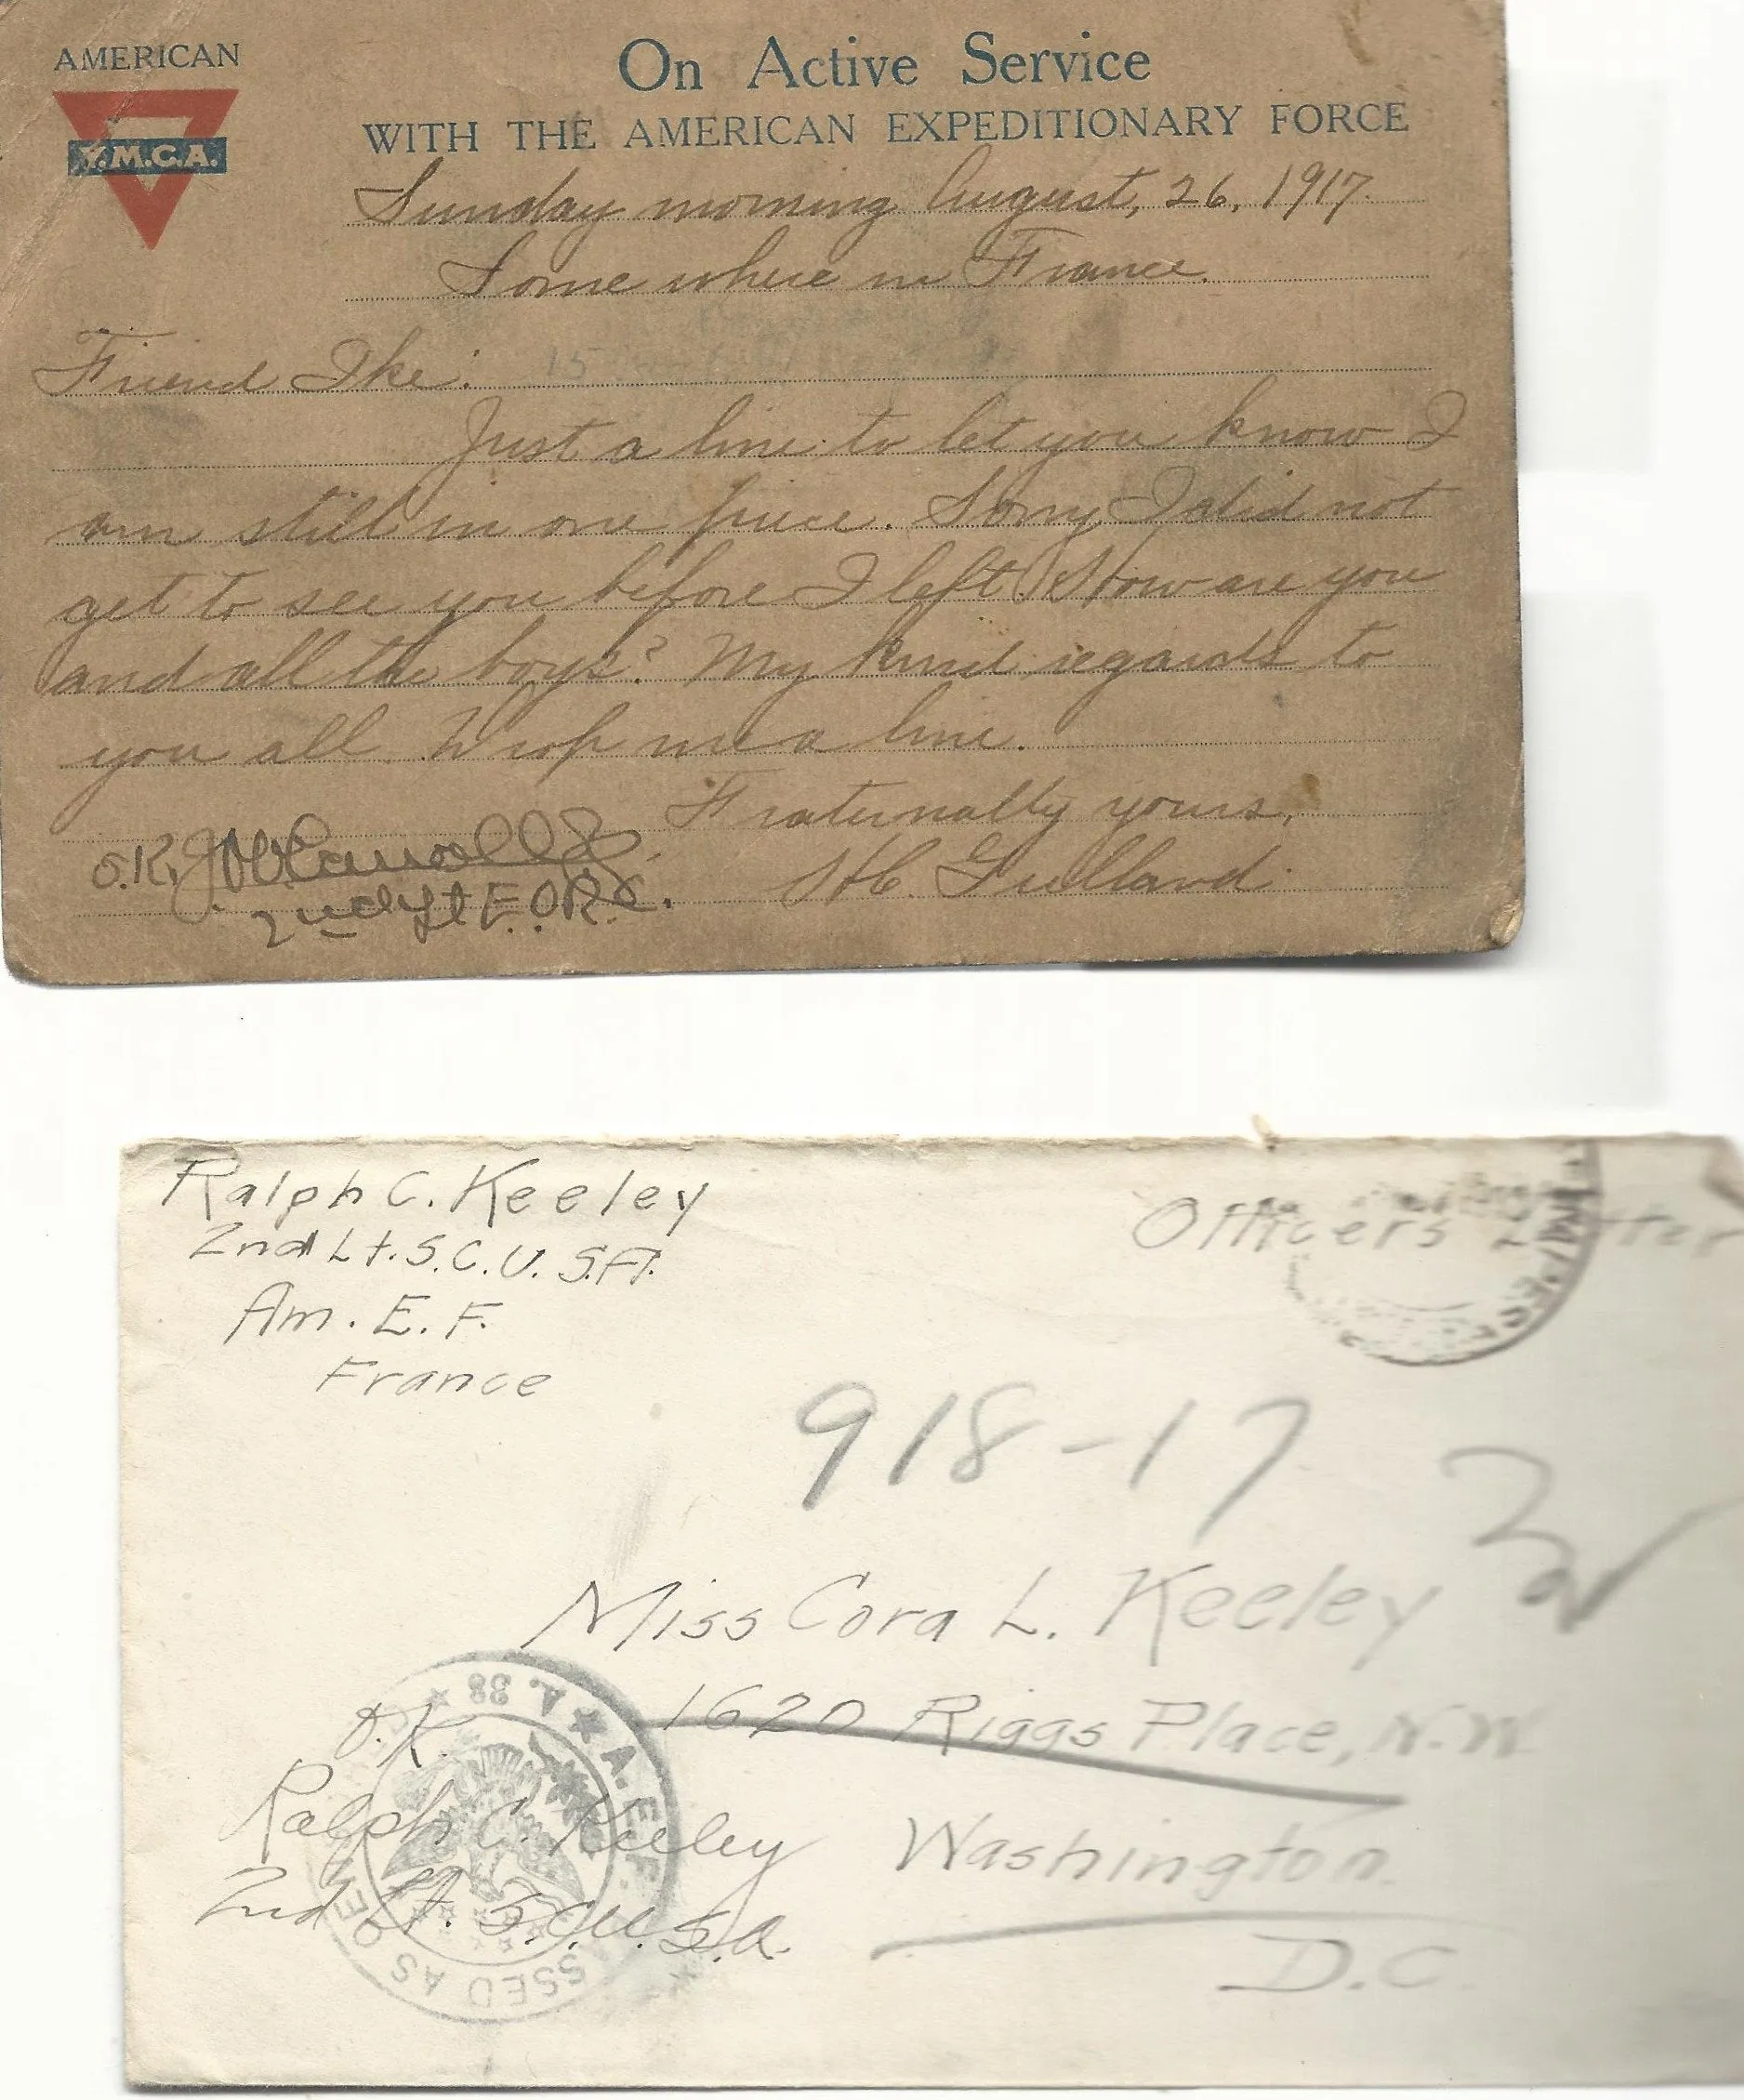 AMERICAN
Y.M.C.A.
On Active Service
WITH THE AMERICAN EXPEDITIONARY FORCE
Sunday morning August, 26, 1917.
Some where in France.
Friend Ike:
Just a line to let you know I
am still in one piece. Sorry I did not
get to see you before I left. How are you
and all the boys? My kind regards to
you all. Drop me a line.
Fraternally yours,
Gulland
O.K.
2nd Lt E.O.R.C.
Ralph C. Keeley
2nd Lt. S.C. U.S.A.
Am. E. F.
France
Officers
918-17
Miss Cora L. Keeley
1620 Riggs Place, N.W.
Washington.
D.C.
O.K.
Ralph C. Keeley
2nd Lt. S.C. U.S.A.
A.E.F.
PASSED AS CENSORED
A. 38